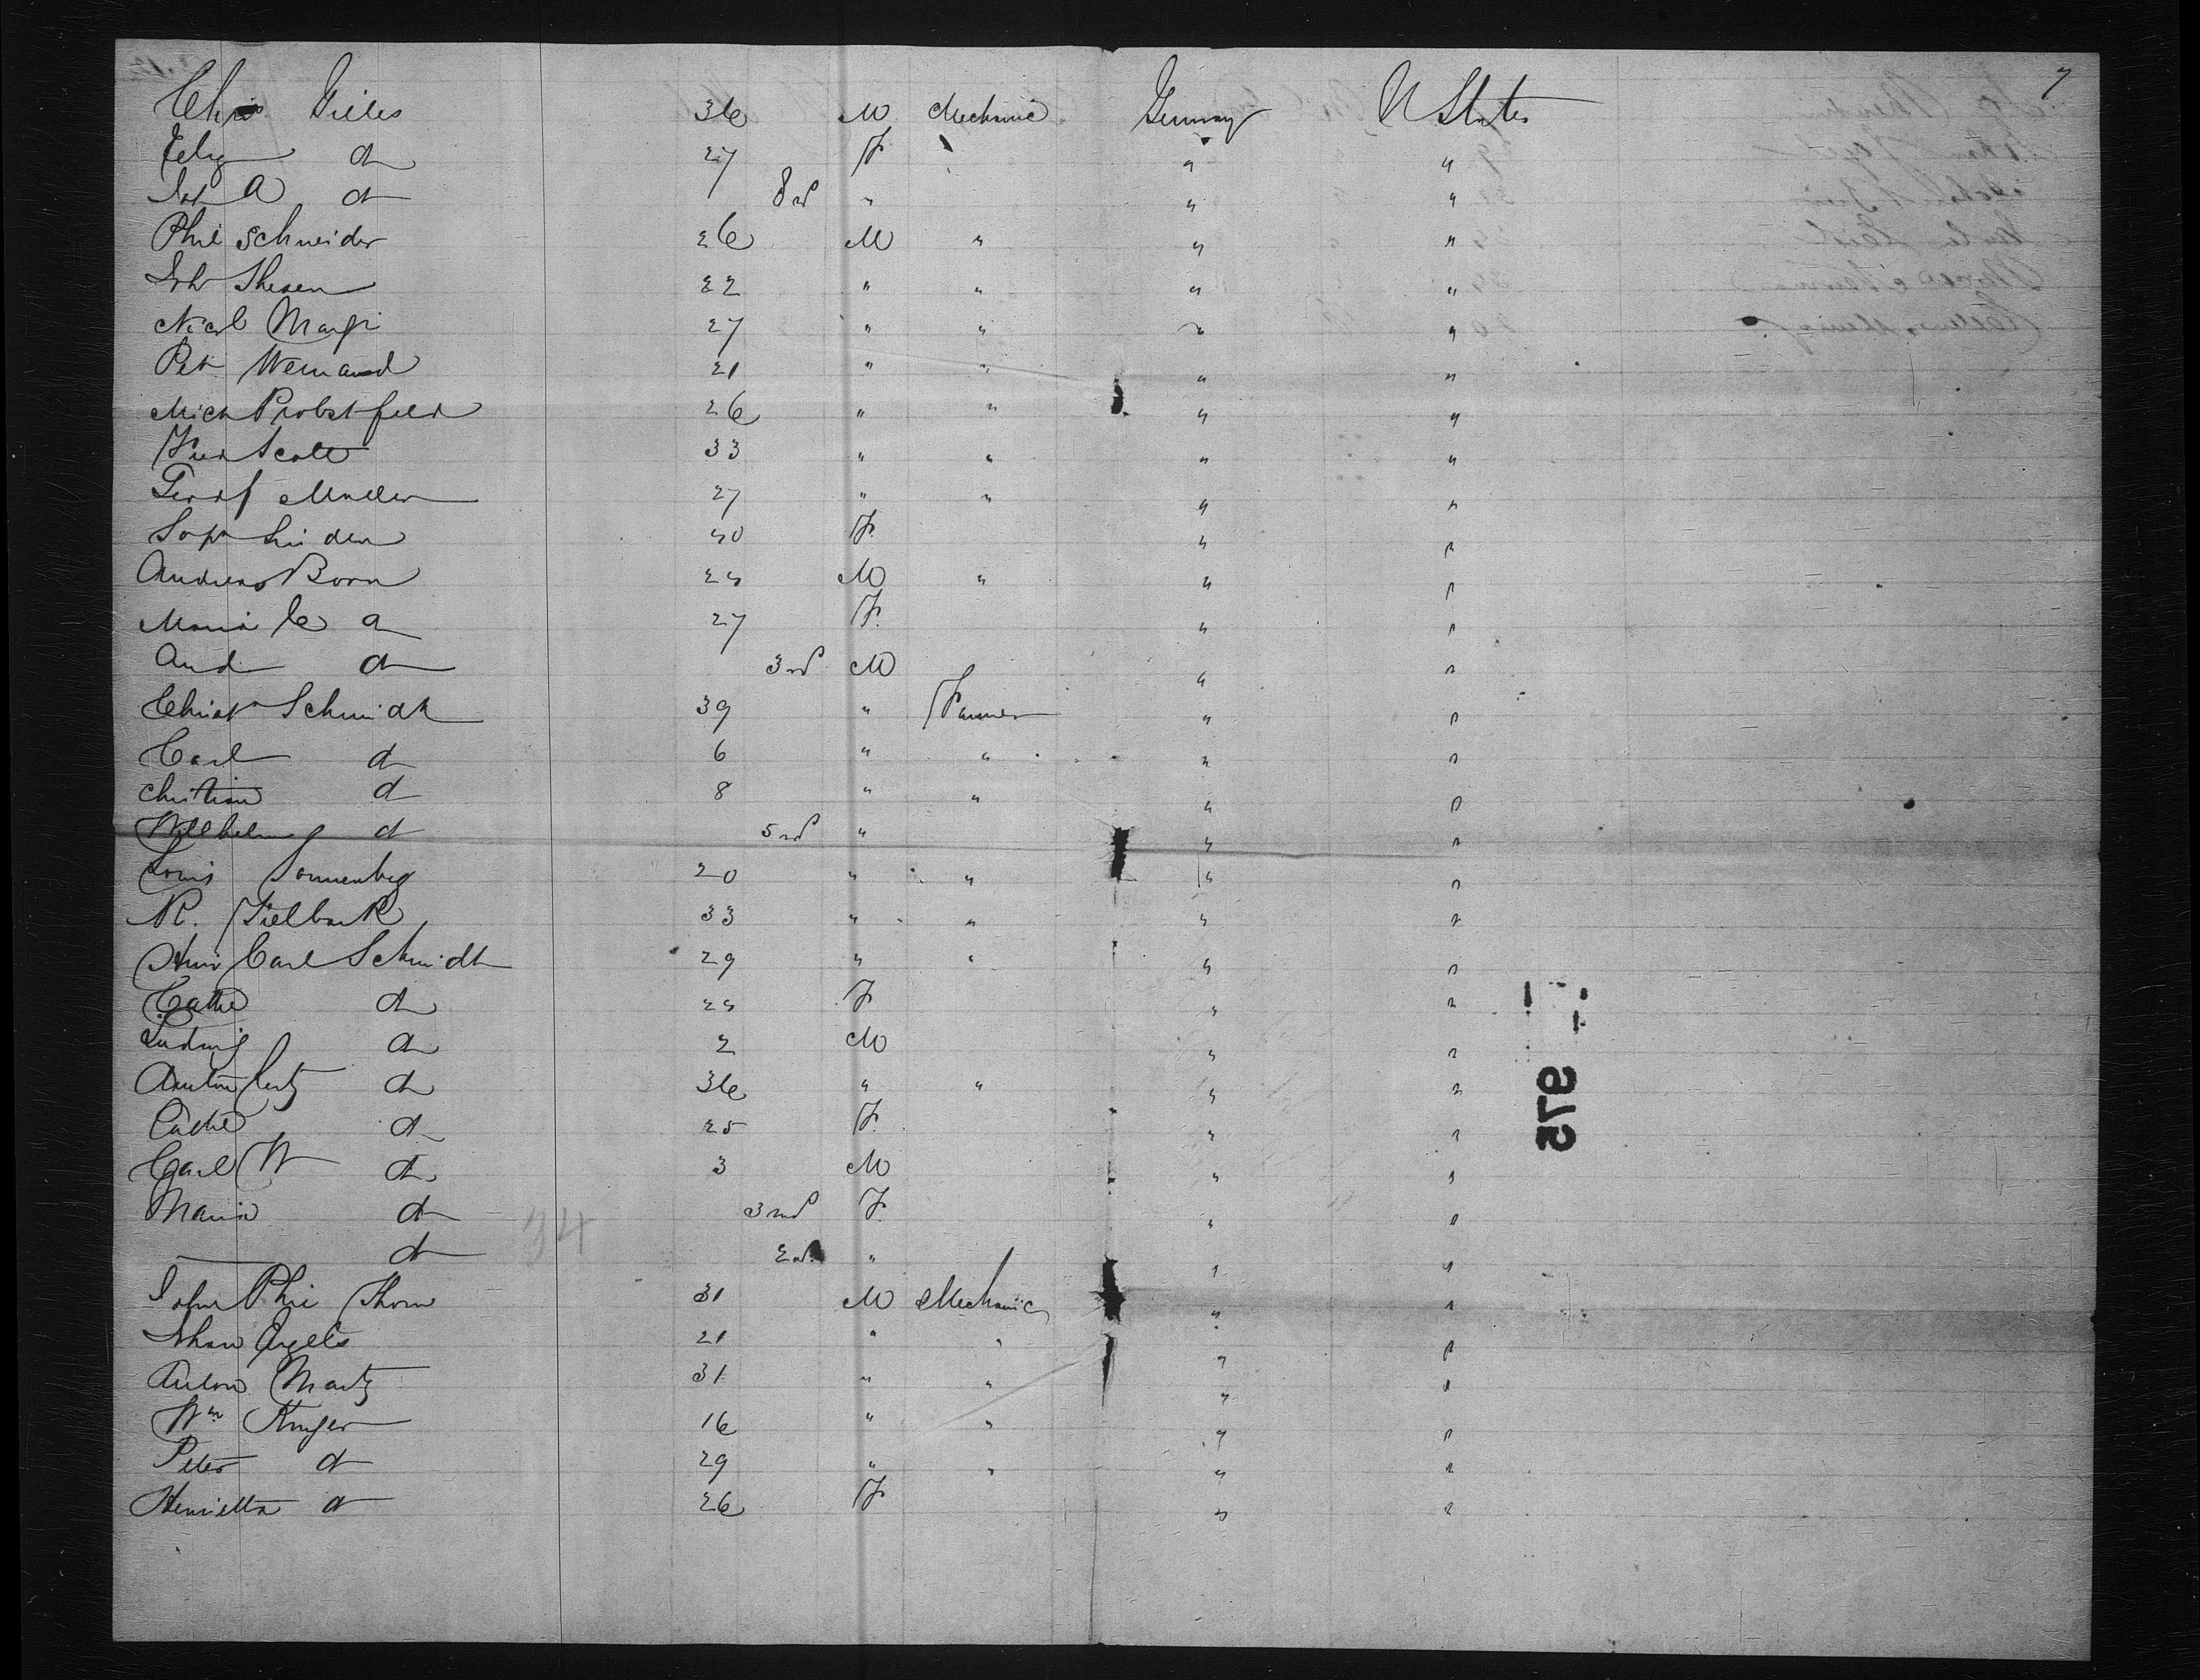 7
Chr Gieles 36 M Mechanic Germany U States
Eliz do 27 F " "
A do 8 " " "
Phil Schneider 26 M " " "
Joh Thesen 22 " " " "
Nicol 27 " " " "
Pet Weinand 21 " " " "
Mich Probstfeld 26 " " " "
Fred Scott 33 " " " "
Muller 27 " " " "
Soph Linden 40 F " "
Andreas Born 24 M " " "
Maria C do 27 F " "
And do 3 M " "
Christ Schmidt 39 " Farmer " "
Carl do 6 " " " "
Christian do 8 " " " "
Wilhelm do 5 " " "
Louis Sonnenberg 20 " " " "
R. Fielbark 33 " " " "
Carl Schmidt 29 " " " "
Cathe do 24 F " "
Ludwig do 2 M " "
Anton do 36 " " " "
Cathe do 25 F " "
Carl W do 3 M " "
Maria do 3 F " "
do 2 " " "
34
John Phil Thorn 31 M Mechanic " "
Engels 21 " " " "
Anton Martz 31 " " " "
Wm Kruger 16 " " " "
Peter do 29 " " " "
Henrietta do 26 F " "
975